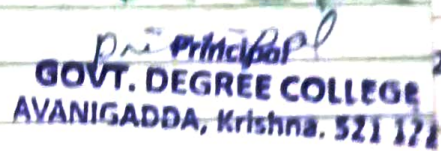 Principal
GOVT. DEGREE COLLEGE
AVANIGADDA, Krishna. 521 121